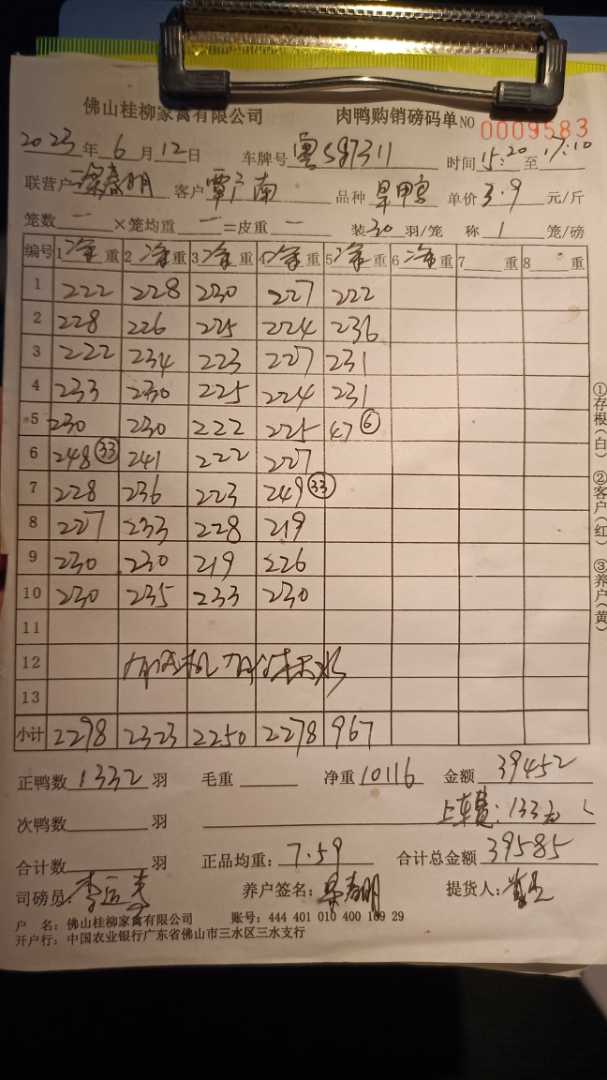 佛山桂柳家禽有限公司 肉鸭购销磅码单 NO 0009583
2023年6月12日 车牌号 粤S97311 时间15:20至17:10
联营户 客户 覃广南 品种 单价3.9元/斤
笼数 一 ×笼均重 一 =皮重 一 装30羽/笼 称1笼/磅
编号 1净重 2净重 3净重 4净重 5净重 6净重 7 重 8 重
1 222 228 230 227 222
2 228 226 225 224 236
3 222 234 223 227 231
4 233 230 225 224 231
5 230 230 222 225 47⑥
6 248㉝ 241 222 227
7 228 236 223 249㉝
8 227 233 228 219
9 230 230 219 226
10 230 235 233 230
11
12
13
小计 2298 2323 2250 2278 967
正鸭数1332羽 毛重 净重10116 金额39452
次鸭数 羽 上车费:133元
合计数 羽 正品均重:7.59 合计总金额39585
司磅员: 养户签名: 提货人:
户 名:佛山桂柳家禽有限公司 账号:444 401 010 400 189 29
开户行:中国农业银行广东省佛山市三水区三水支行
①存根(白) ②客户(红) ③养户(黄)